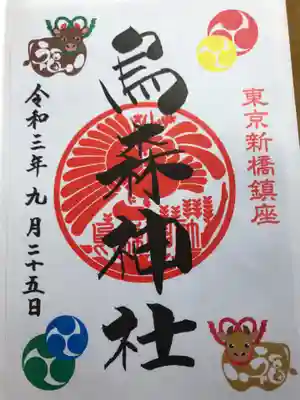 東京新橋鎮座
烏森神社
令和三年九月二十五日